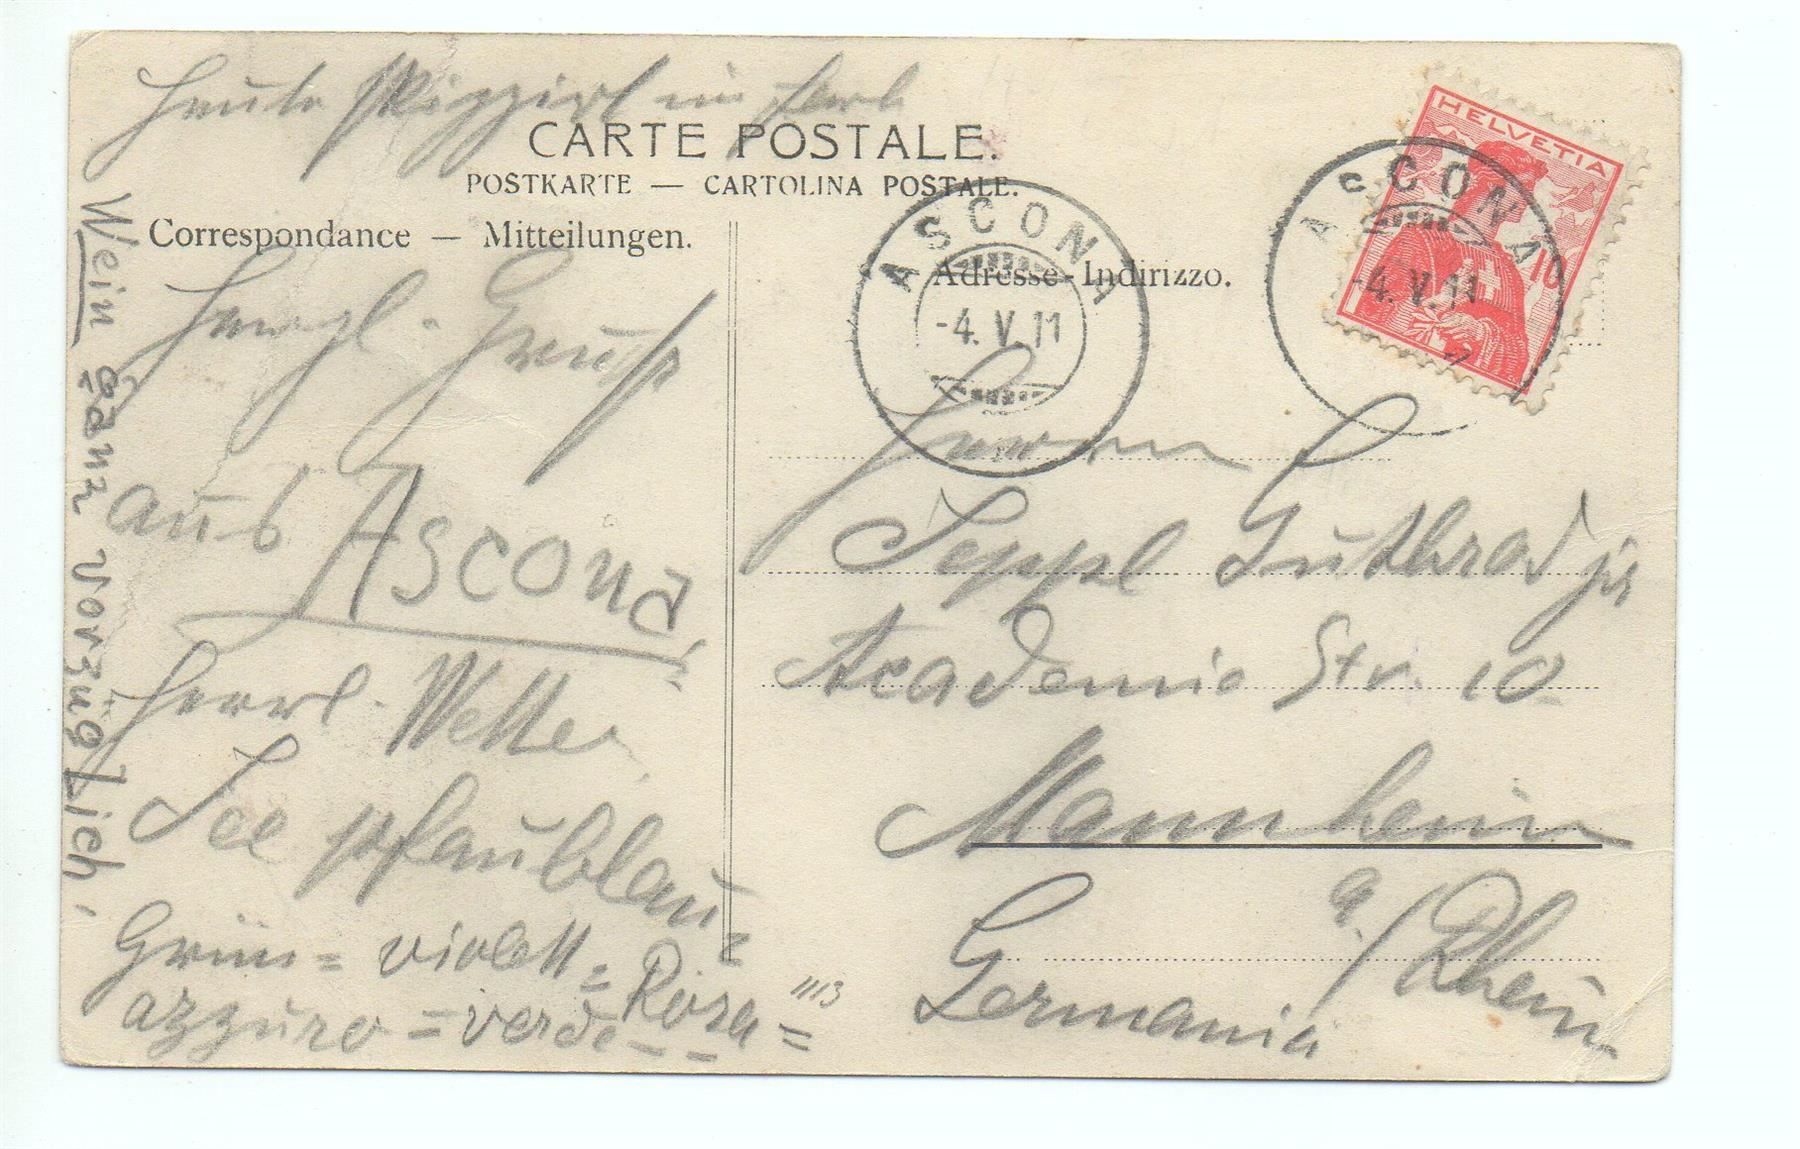 Heute skizzirt in Farb
CARTE POSTALE.
POSTKARTE — CARTOLINA POSTALE.
Correspondance — Mitteilungen.
Adresse - Indirizzo.
HELVETIA
10
ASCONA
-4.V.11
ASCONA
-4.V.11
Herzl. Grüsse
aus Ascona,
Herrl. Wetter
See pfaublau=
Grün= violett= Rosa=
azzuro=verde--
Wein ganz vorzüglich,
Herrn
Seppl Gutbrod jr
Academie Str. 10
Mannheim
a/Rhein
Germania
1113